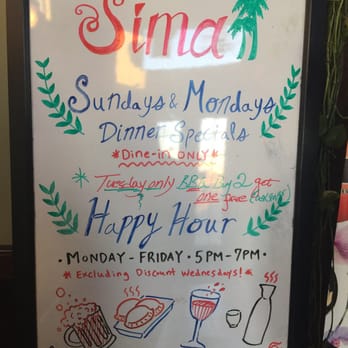 Sima
Sundays & Mondays
Dinner Specials
*Dine-in ONLY*
* Tuesday only BBQ Buy 2 get
one free
Happy Hour
• MONDAY - FRIDAY • 5PM - 7PM •
* Excluding Discount Wednesdays! *